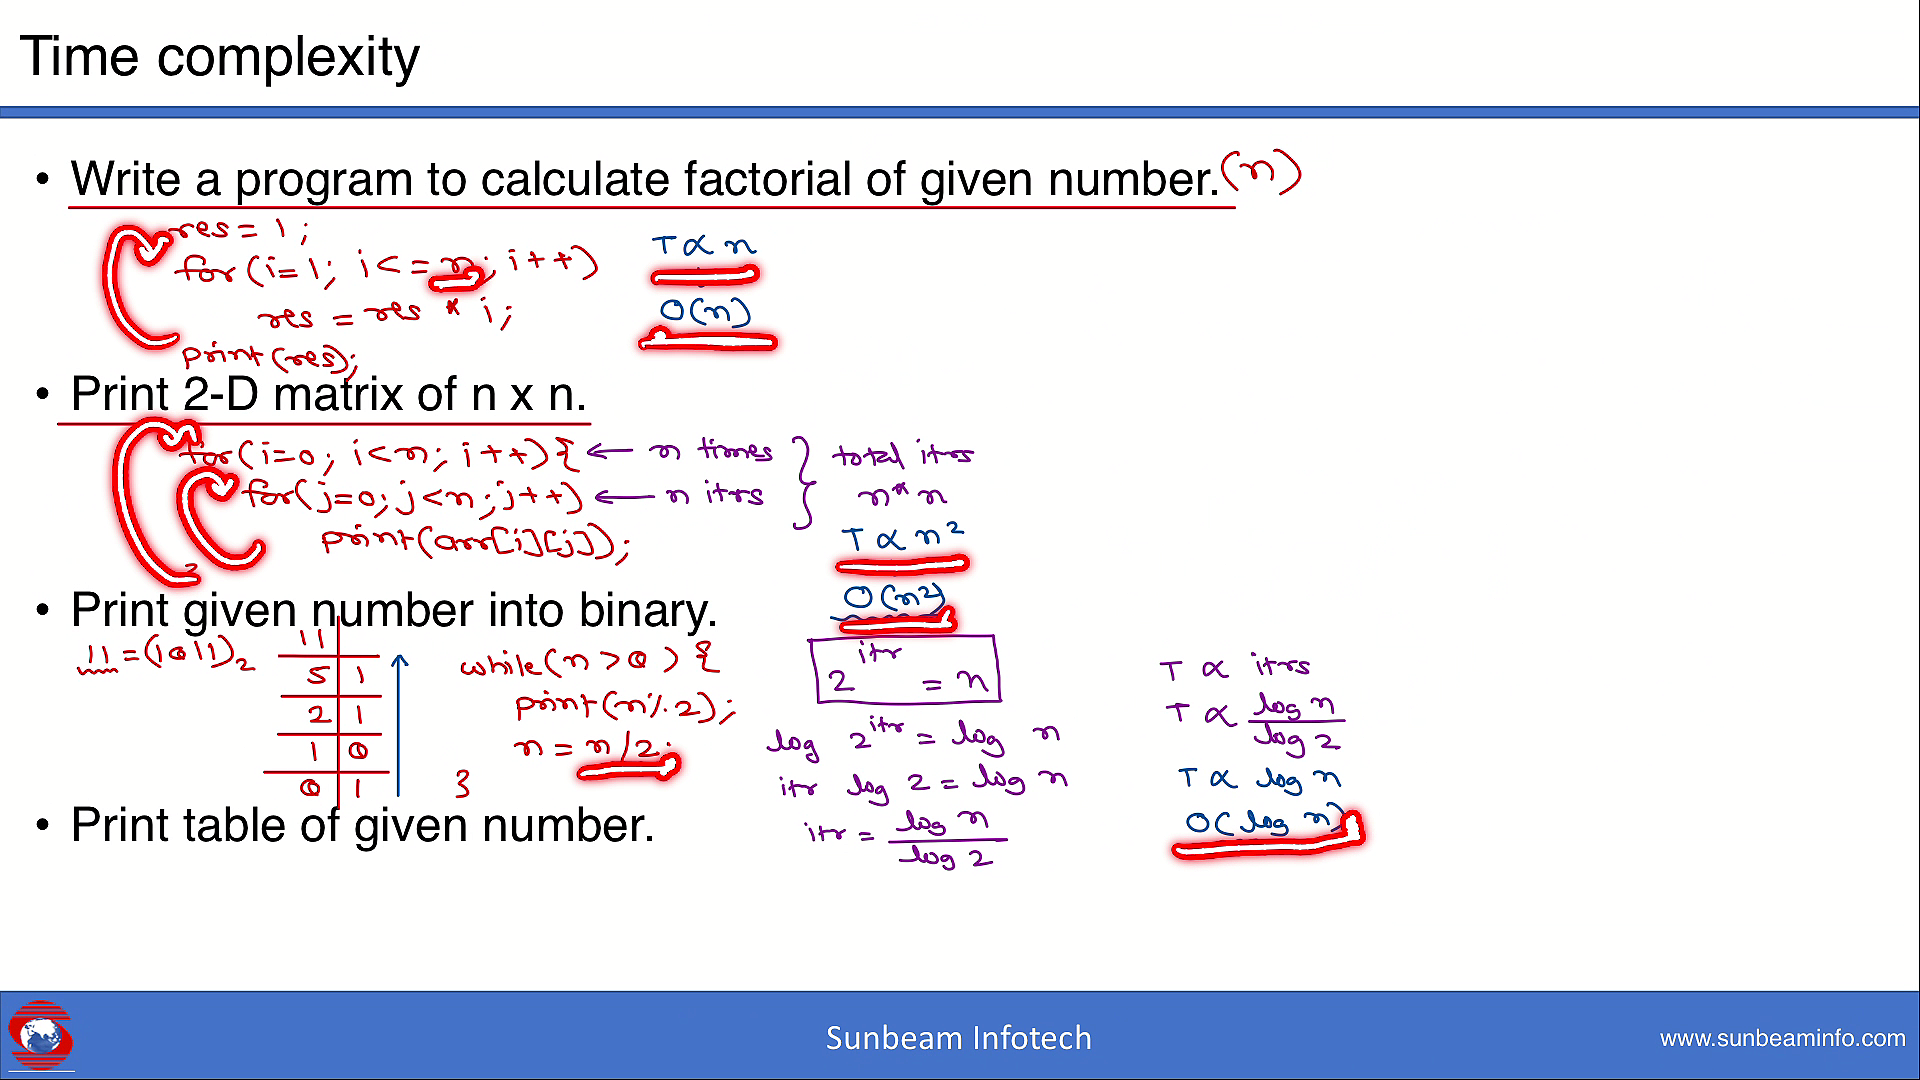 Time complexity
• Write a program to calculate factorial of given number. (n)
res = 1;
for(i=1; i<=n; i++)
res = res * i;
print(res);
T ∝ n
O(n)
• Print 2-D matrix of n x n.
for(i=0; i<n; i++){ ← n times
for(j=0; j<n; j++) ← n itrs
print(arr[i][j]);
}
total itrs
n*n
T ∝ n²
O(n²)
• Print given number into binary.
11 = (1011)₂
11
5 1
2 1
1 0
0 1
while(n>0){
print(n%2);
n = n/2;
}
2^itr = n
log 2^itr = log n
itr log 2 = log n
itr = log n / log 2
T ∝ itrs
T ∝ log n / log 2
T ∝ log n
O(log n)
• Print table of given number.
Sunbeam Infotech
www.sunbeaminfo.com